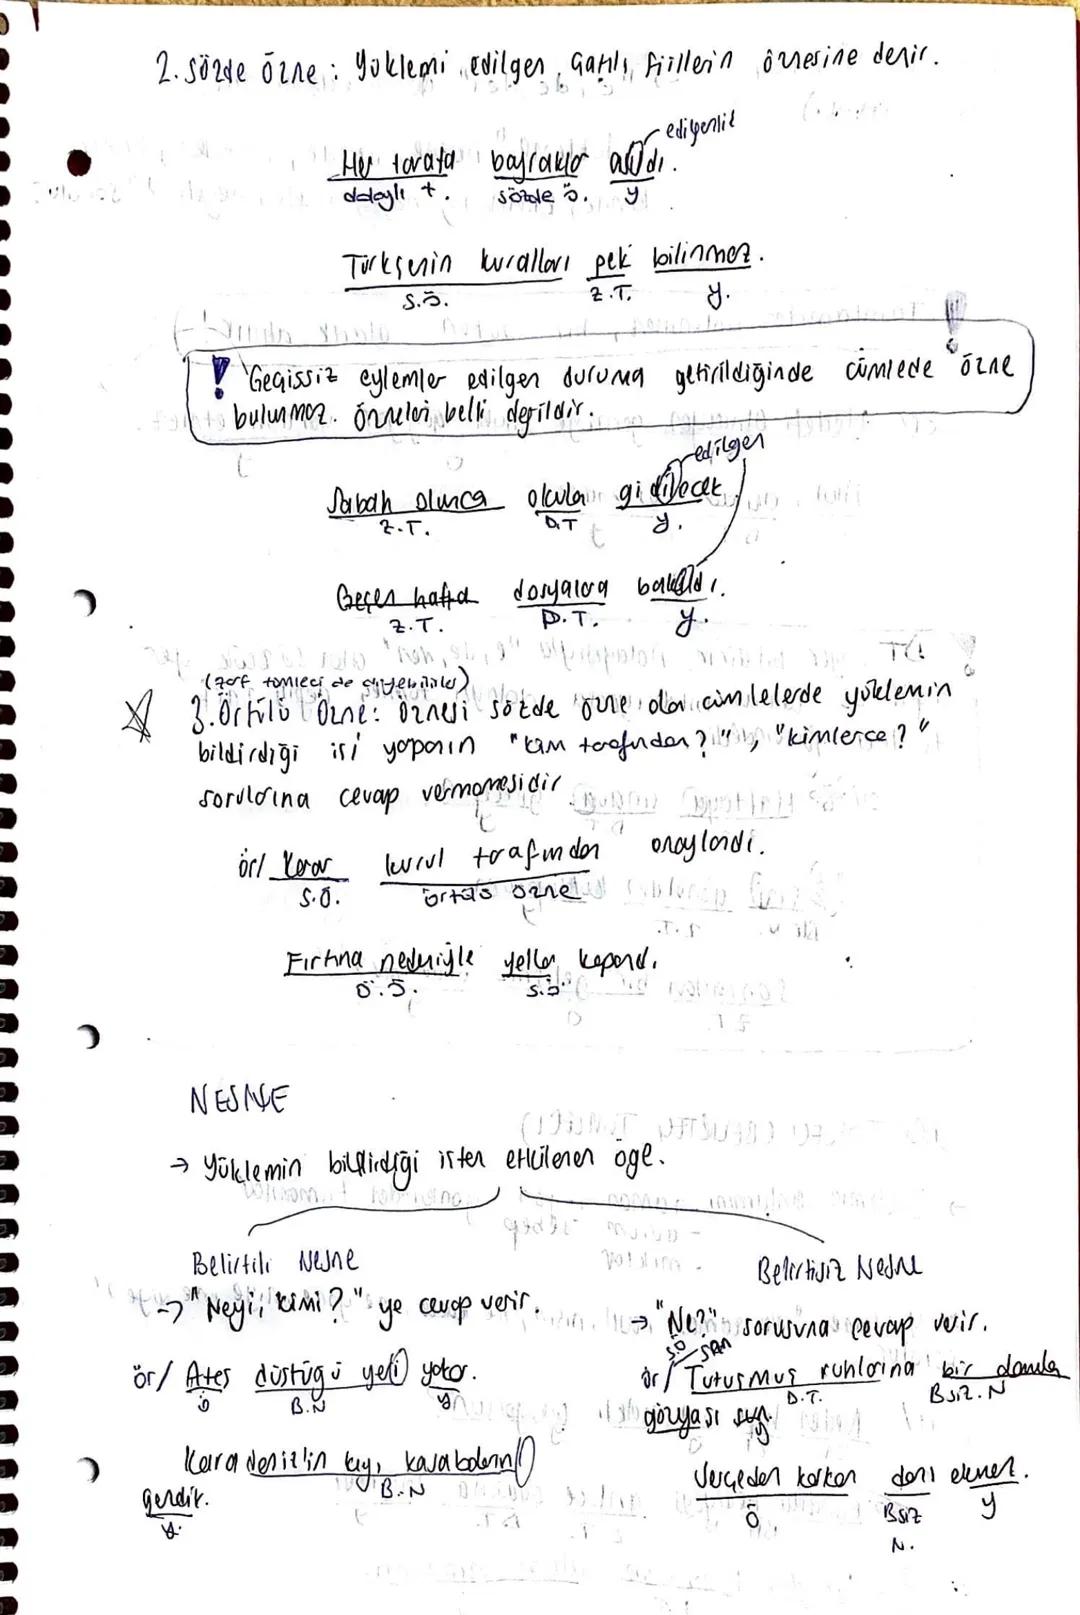 2. Sözde Özne : Yüklemi edilgen çatılı fiillerin öznesine denir.
edilgenlik
Her tarafa bayraklar asıldı.
dolaylı t. sözde ö. y
Türkçenin kuralları pek bilinmez.
S.Ö. Z.T. y.
! Geçissiz eylemler edilgen duruma getirildiğinde cümlede özne
bulunmaz. Özneleri belli değildir.
edilgen
Sabah olunca okula gidilecek
Z.T. D.T y.
Geçen hafta dosyalara bakıldı.
Z.T. D.T. y.
(zarf tümleci de diyebilirler)
3. Örtülü Özne: Öznesi sözde özne olan cümlelerde yüklemin
bildirdiği işi yapanın "kim tarafından?", "kimlerce?"
sorularına cevap vermemesidir
ör/ Karar kurul tarafından onaylandı.
S.Ö. örtülü özne
Fırtına nedeniyle yollar kapandı.
Ö.Ö. S.Ö.
NESNE
→ Yüklemin bildirdiği işten etkilenen öge.
Belirtili Nesne
→ "Neyi, kimi?" ye cevap verir.
ör/ Ateş düştüğü yeri yakar.
ö B.N y
Karadeniz'in kıyı kasabalarını
B.N
gezdik.
y.
Belirtisiz Nesne
→ "Ne?" sorusuna cevap verir.
ör/ Tutuşmuş ruhlarına bir damla
D.T. Bsiz.N
gözyaşı sun.
y
Serçeden korkan darı ekmez.
Ö Bsiz N. y